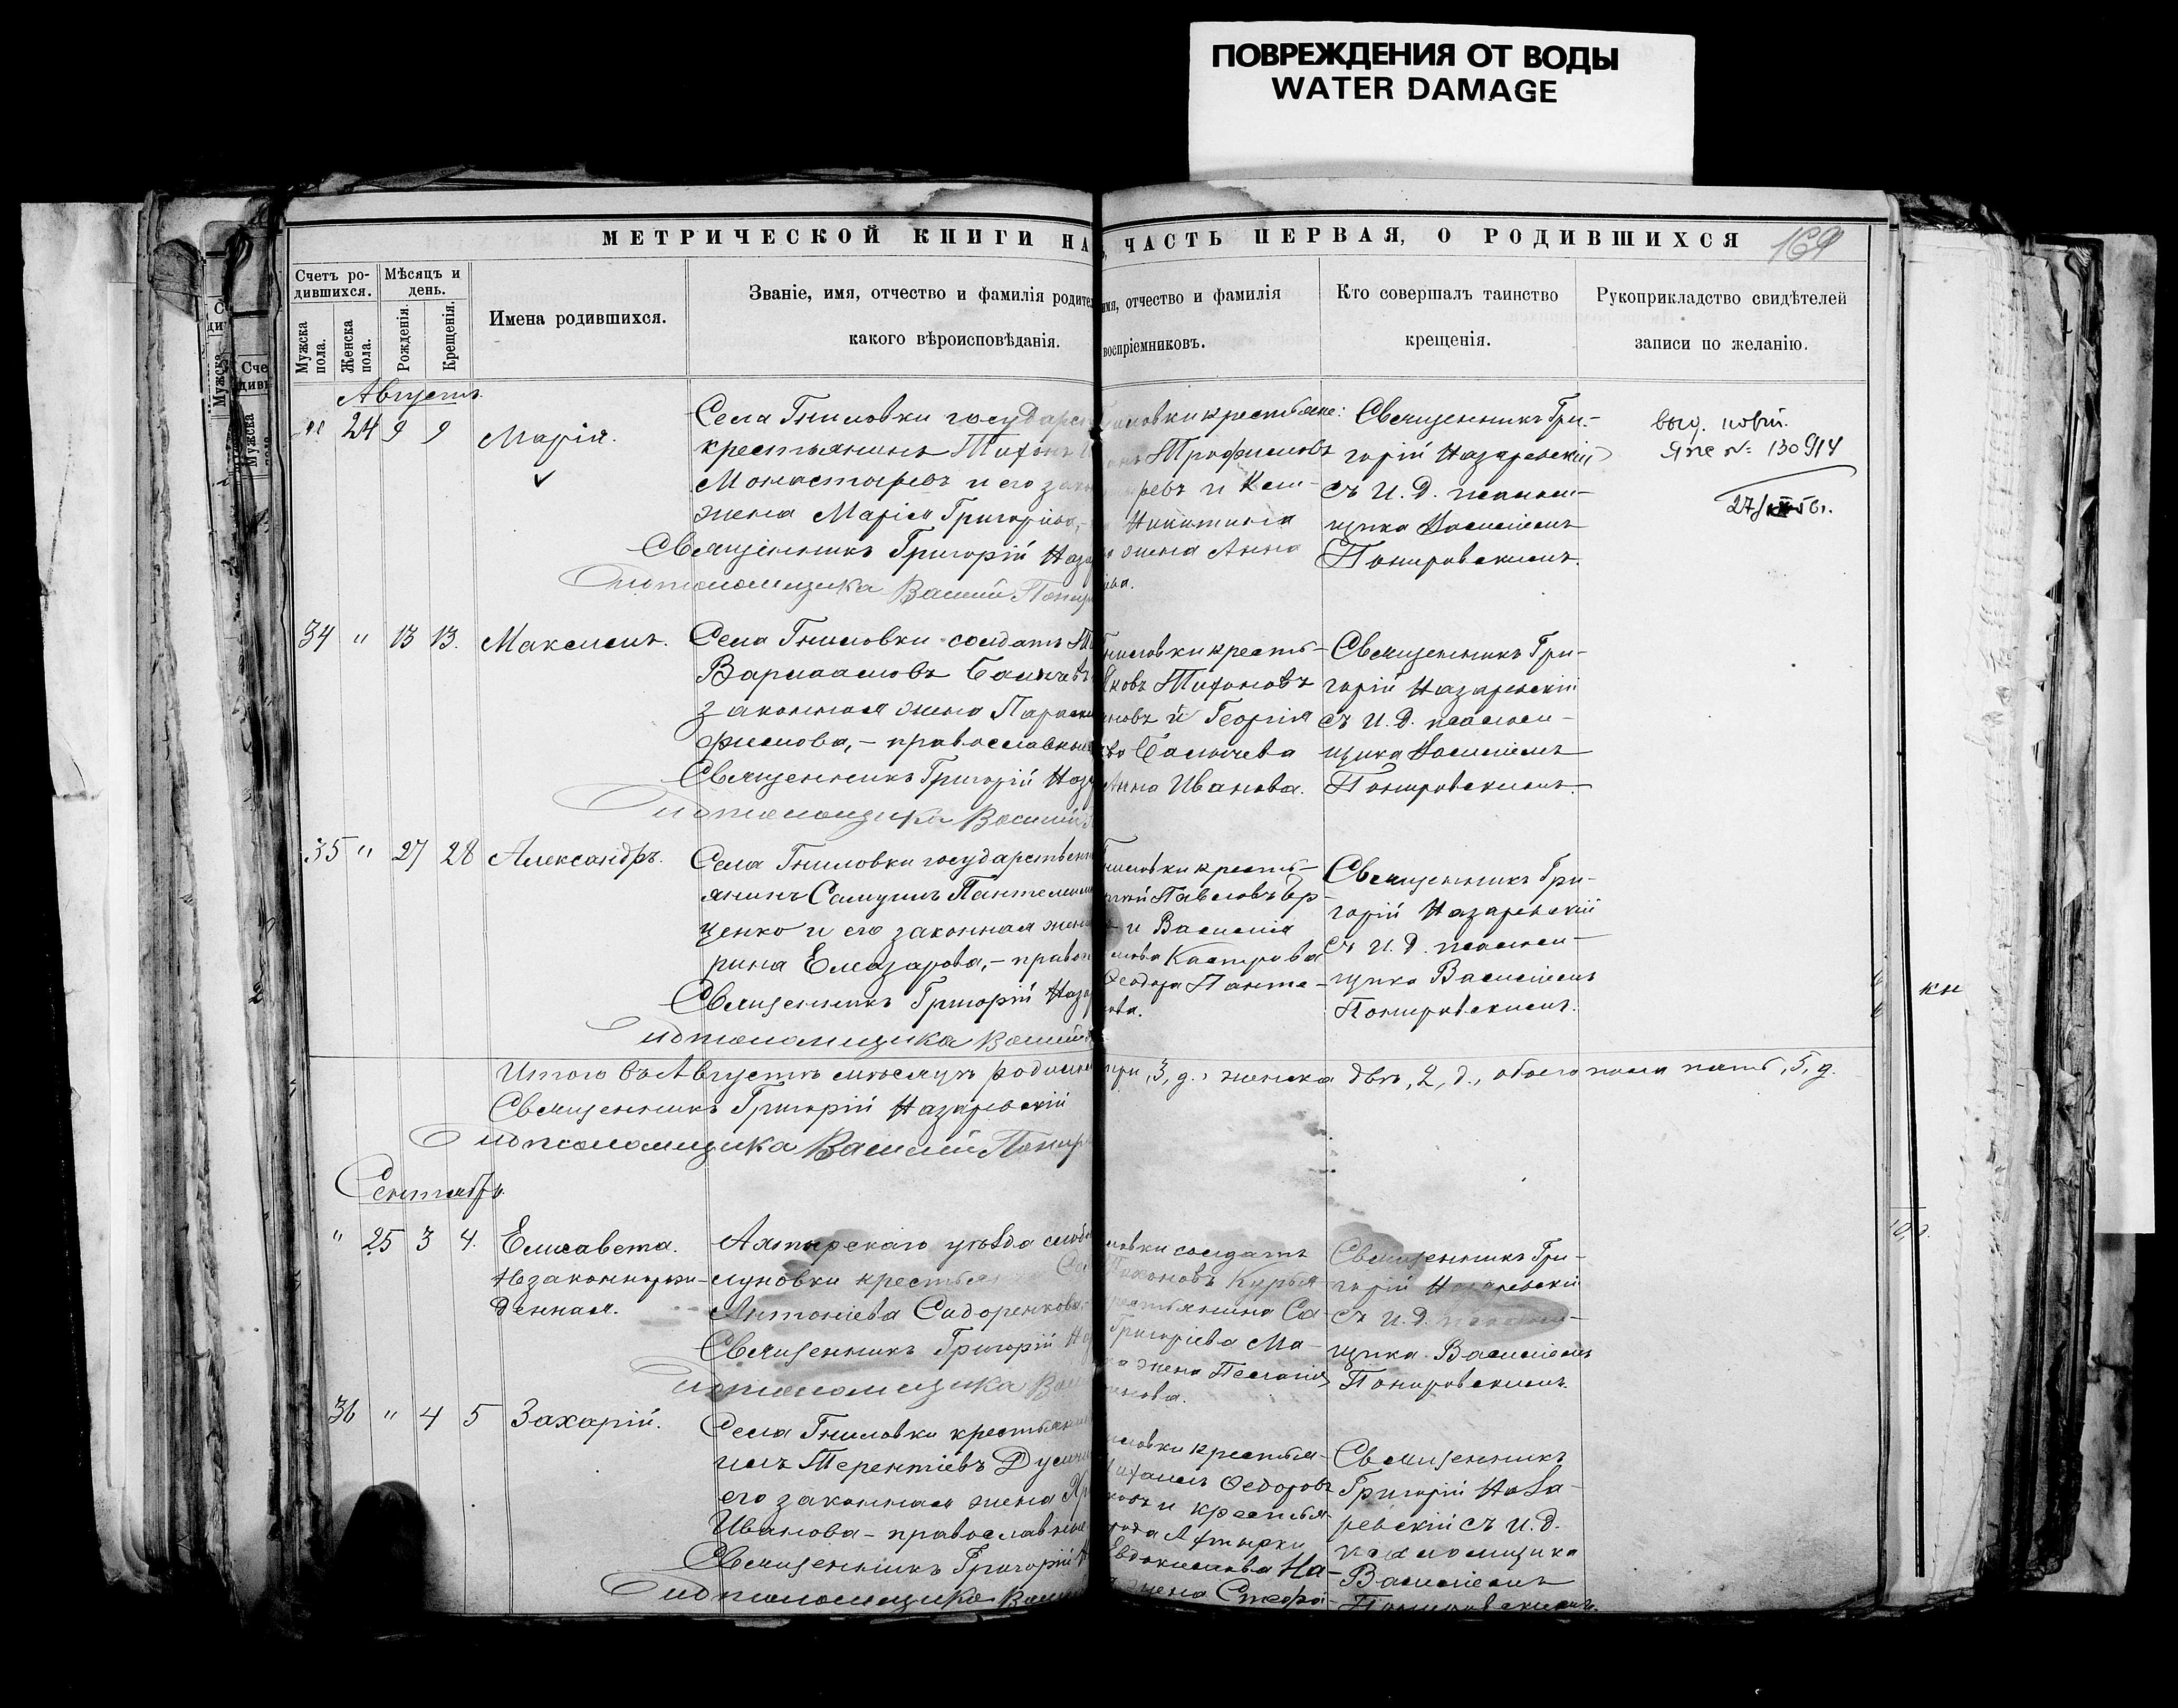 ПОВРЕЖДЕНИЯ ОТ ВОДЫ
WATER DAMAGE
МЕТРИЧЕСКОЙ КНИГИ НА
ЧАСТЬ ПЕРВАЯ, О РОДИВШИХСЯ
169
Счетъ ро-
дившихся.
Мѣсяцъ и
день.
Мужска
пола.
Женска
пола.
Рожденія.
Крещенія.
Имена родившихся.
Званіе, имя, отчество и фамилія родите
какого вѣроисповѣданія.
имя, отчество и фамилія
воспріемниковъ.
Кто совершалъ таинство
крещенія.
Рукоприкладство свидѣтелей
записи по желанію.
Августъ
24 9 9 Марія.
Села Гниловки государст
крестьянинъ Тихонъ
Монастыревъ и его зако
жена Марія Григоріева,
Священникъ Григорій Наза
Ид псаломщика Василій Понир
крестьяне:
Трофимовъ
ревъ и Ксе-
Никитина
жена Анна
Священникъ Гри-
горій Назаревскій
съ И. Д. псаломщ-
щика Василіемъ
Понировскимъ.
выд. повт.
ЯПС № 130914
34 " 13 13. Максимъ.
Села Гниловки солдатъ
Варлаамовъ
законная жена Параске
фимова, - православны
Священникъ Григорій Наза
Ид псаломщика Василій
Гниловки кресть-
Яковъ Тихоновъ
новъ и Георгія
Анна Иванова.
Священникъ Гри-
горій Назаревскій
съ И. Д. псалом-
щика Василіемъ
Понировскимъ.
35 " 27 28 Александръ.
Села Гниловки государственн
янинъ Самуилъ Пантелеимо
ценко и его законная жена
рина Елеазарова, - правос
Священникъ Григорій Назар
Ид псаломщика Василій
Гниловки кресть-
Павловъ
и Василія
Кастрова
Ѳеодора Панте-
Священникъ Гри-
горій Назаревскій
съ И. Д. псалом-
щика Василіемъ
Понировскимъ.
Итого въ Августѣ мѣсяцѣ родилос
три, 3, д., женска двѣ, 2, д., обоего пола пять, 5, д.
Священникъ Григорій Назаревскій
Ид псаломщика Василій Понир
Сентябрь
" 25 3 4. Елисавета.
Незаконнорож-
денная.
Ахтырскаго уѣзда слобо
луновки крестьян
Антоніева Сидоренкова
Священникъ Григорій На
Ид псаломщика Васи
солдатъ
Тихоновъ Курья
крестьянина Са
Григоріева Ма-
жена Пелагія
Священникъ Гри-
горій Назаревскій
съ И. Д. псалом-
щика Василіемъ
Понировскимъ.
36 " 4 5 Захарій.
Села Гниловки крестьянин
Терентіевъ
его законная жена
Иванова - православные
Священникъ Григорій
Ид псаломщика Васи
крестья-
Ѳедоровъ
и крестья-
города Ахтырки
Евдокимова На-
жена Стефа-
Священникъ
Григорій Наза-
ревскій съ И. Д.
псаломщика
Василіемъ
Понировскимъ.